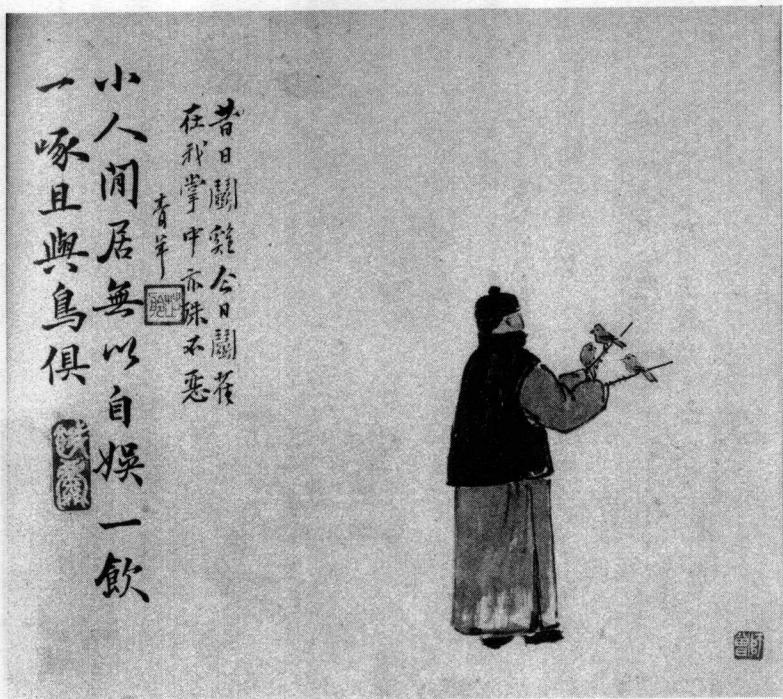 昔日鬭雞今日鬭雀
在我掌中亦殊不惡
青羊
小人閒居無以自娛一飲
一啄且與鳥俱
師曾